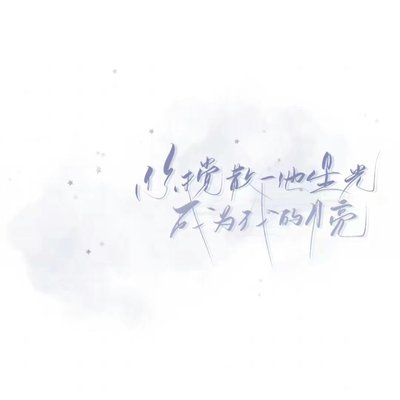 你搅散一池星光
成为我的月亮